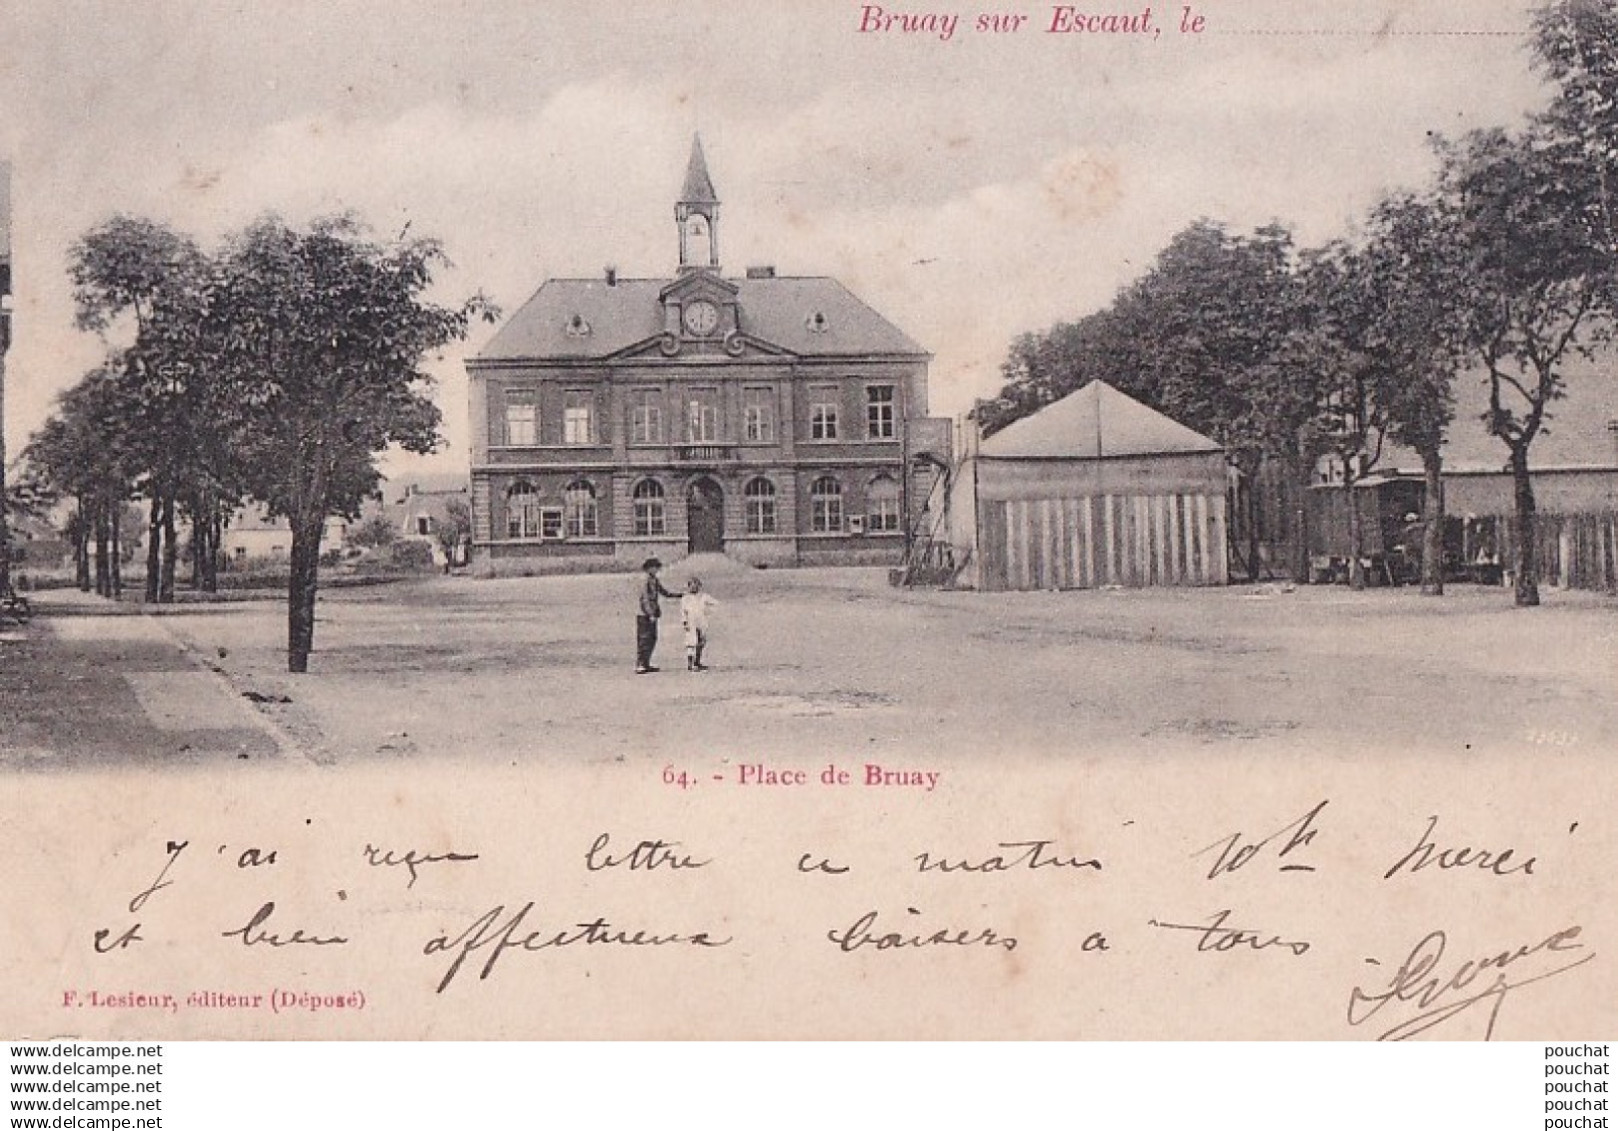 Bruay sur Escaut, le
64. - Place de Bruay
J'ai reçu lettre ce matin 10h Merci
et bien affectueux baisers a tous
F. Lesieur, éditeur (Déposé)
www.delcampe.net
www.delcampe.net
www.delcampe.net
www.delcampe.net
www.delcampe.net
pouchat
pouchat
pouchat
pouchat
pouchat